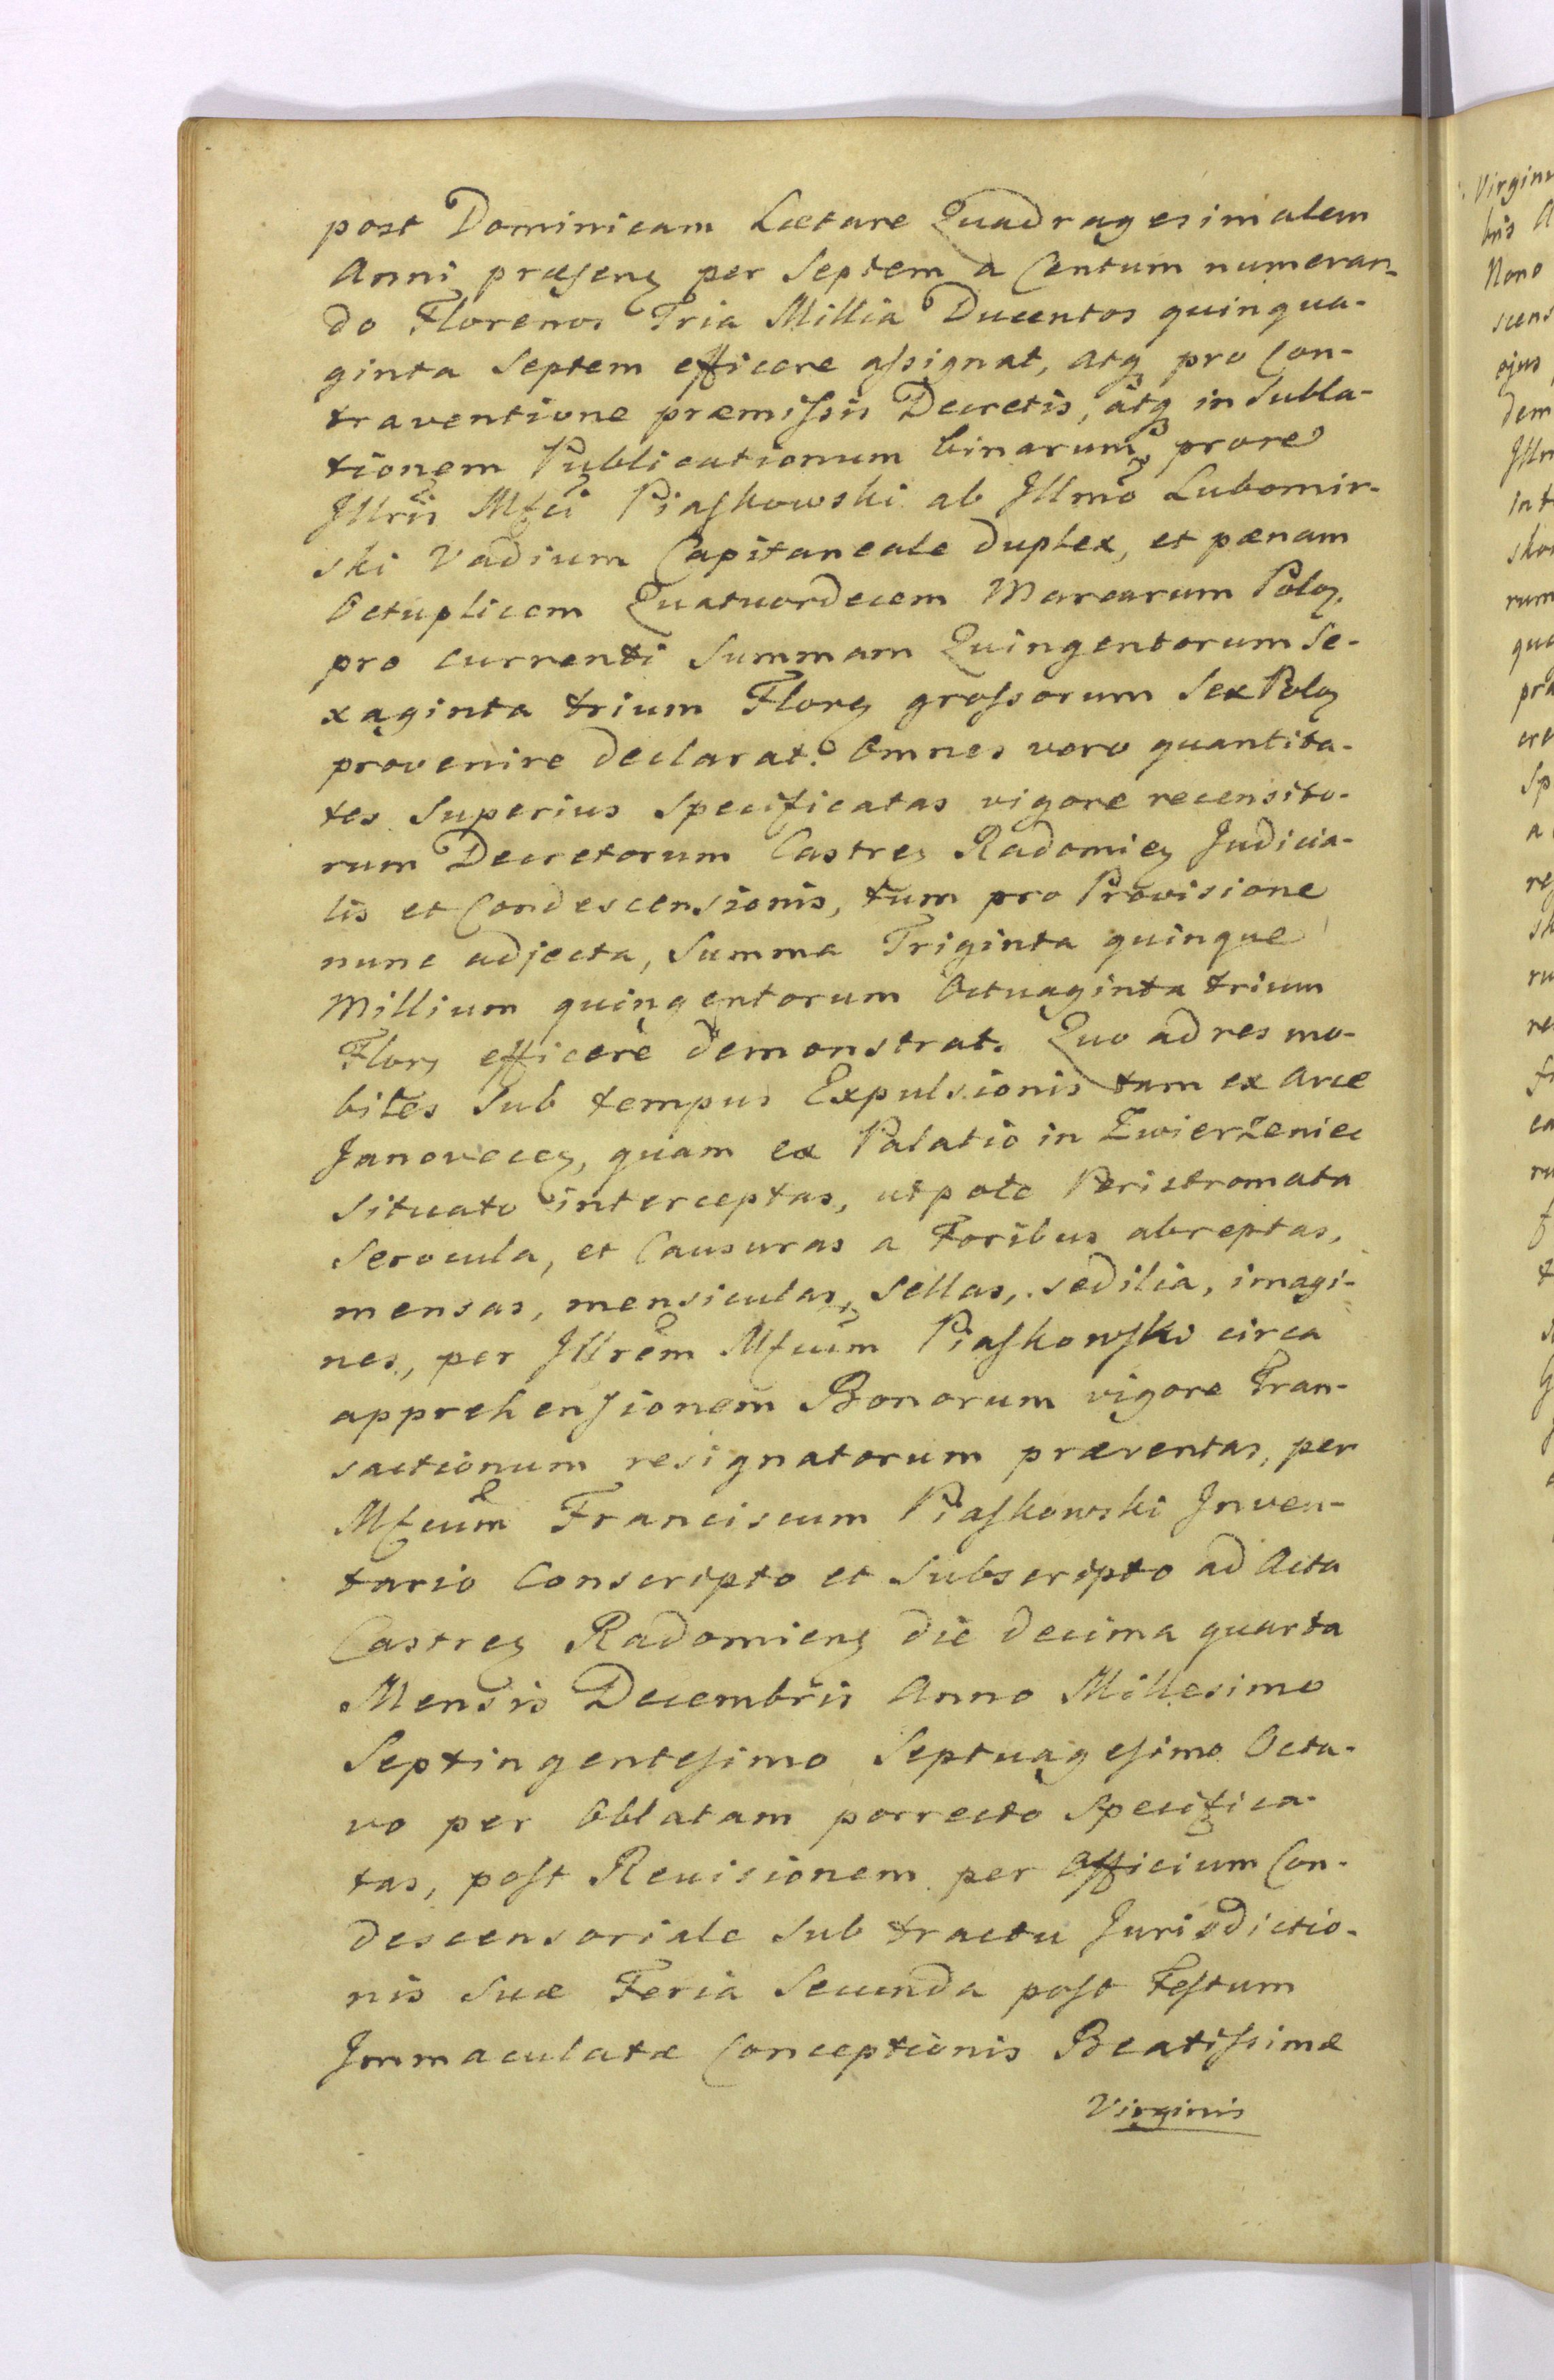 post Dominicam Lætare Quadragesimalem
Anni præsenȝ per Septem a Centum numeran-
do Florenos Tria Millia Ducentos quinqua-
ginta Septem efficere assignat, atqȝ pro Con-
traventione præmissis Decretis, atqȝ in Subla-
tionem Publicationum binarum, pro re
Illris Mfci Piaskowski ab Illmo Lubomir-
ski Vadium Capitaneale duplex, et pœnam
Octuplicem Quatuordecem Marcarum Polȝ.
pro currenti Summam Quingentorum Se-
xaginta trium Florȝ grossorum Sex Polȝ
provenire declarat. Omnes vero quantita-
tes Superius Specificatas vigore recensito-
rum Decretorum Castreȝ Radomieȝ Judicia-
lis et Condescensionis, tum pro Provisione
nunc adjecta, Summa Triginta quinque
Millium quingentorum Octuaginta trium
Florȝ efficere demonstrat. Quo ad res mo-
biles Sub tempus Expulsionis tam ex Arce
Janoveceȝ, quam ex Palatio in Zwierzeniec
Situato interceptas, utpote Peristromata
Serocula, et Causuras a Foribus abreptas,
mensas, mensiculas, Sellas, sedilia, imagi-
nes, per Illrem Mfcum Piaskowski circa
apprehensionem Bonorum vigore Tran-
sactionum resignatorum præventas, per
Mfcum Franciscum Piaskowski Inven-
tario Conscripto et Subscripto ad Acta
Castreȝ Radomienȝ die decima quarta
Mensis Decembris Anno Millesimo
Septingentesimo Septuagesimo Octa-
vo per Oblatam porrecto Specifica-
tas, post Revisionem per Officium Con-
descensoriale Sub tractu Jurisdictio-
nis Suæ Feria Secunda post Festum
Immaculatæ Conceptionis Beatissimæ
Virginis